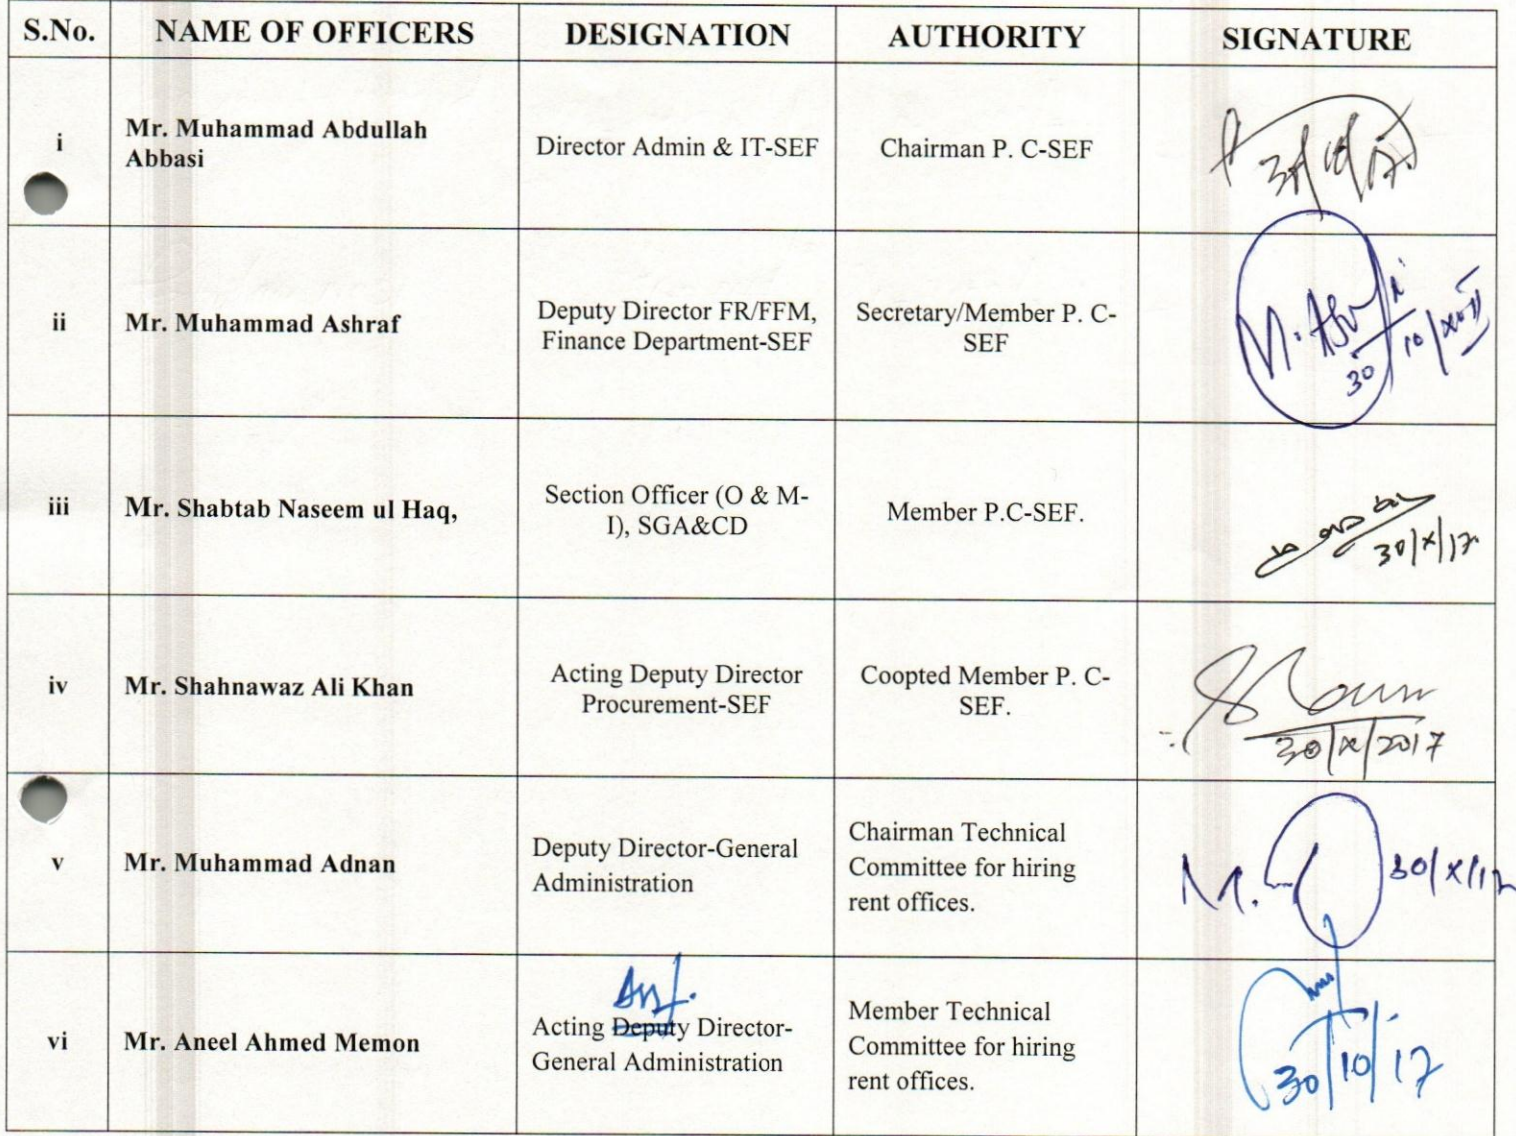 S.No. NAME OF OFFICERS DESIGNATION AUTHORITY SIGNATURE
i
Mr. Muhammad Abdullah
Abbasi
Director Admin & IT-SEF
Chairman P. C-SEF
ii
Mr. Muhammad Ashraf
Deputy Director FR/FFM,
Finance Department-SEF
Secretary/Member P. C-
SEF
30/10/
iii
Mr. Shabtab Naseem ul Haq,
Section Officer (O & M-
I), SGA&CD
Member P.C-SEF.
30/x/17
iv
Mr. Shahnawaz Ali Khan
Acting Deputy Director
Procurement-SEF
Coopted Member P. C-
SEF.
30/x/2017
v
Mr. Muhammad Adnan
Deputy Director-General
Administration
Chairman Technical
Committee for hiring
rent offices.
30/x/17
vi
Mr. Aneel Ahmed Memon
Acting Deputy Director-
General Administration
Member Technical
Committee for hiring
rent offices.
30/10/17